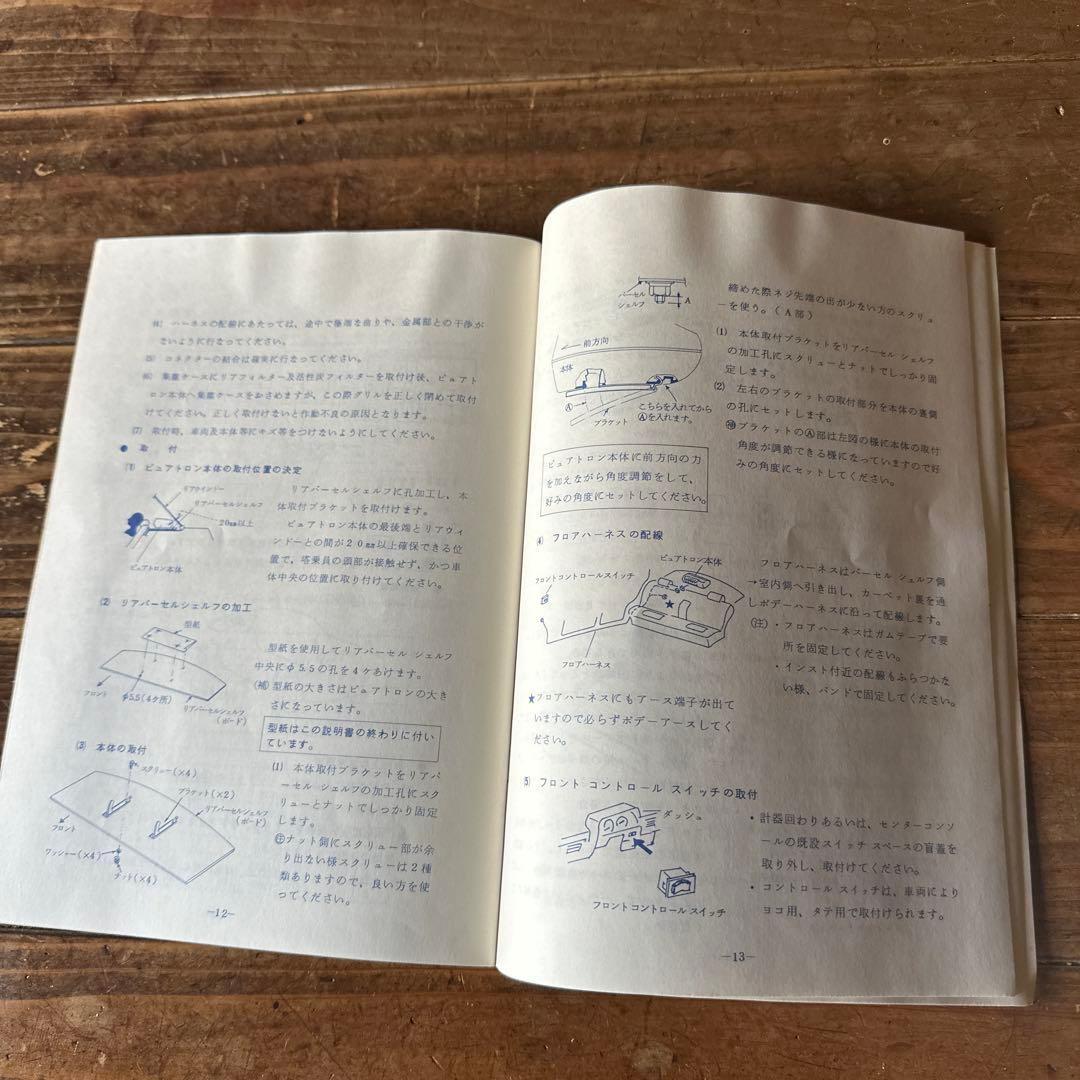 (4) ハーネスの配線にあたっては、途中で極端な曲りや、金属部との干渉が
ないように行なってください。
(5) コネクターの結合は確実に行なってください。
(6) 集塵ケースにリアフィルター及活性炭フィルターを取付け後、ピュアト
ロン本体へ集塵ケースをおさめますが、この際グリルを正しく閉めて取付
けてください。正しく取付けないと作動不良の原因となります。
(7) 取付時、車両及本体等にキズ等をつけないようにしてください。
● 取 付
(1) ピュアトロン本体の取付位置の決定
リアウインドー
リアパーセルシェルフ
20㎜以上
ピュアトロン本体
リアパーセルシェルフに孔加工し、本
体取付ブラケットを取付けます。
ピュアトロン本体の最後端とリアウィ
ンドーとの間が20㎜以上確保できる位
置で、塔乗員の頭部が接触せず、かつ車
体中央の位置に取り付けてください。
(2) リアパーセルシェルフの加工
型紙
フロント
φ5.5(4ケ所)
リアパーセルシェルフ
(ボード)
型紙を使用してリアパーセル シェルフ
中央にφ5.5の孔を4ケあけます。
(補) 型紙の大きさはピュアトロンの大き
さになっています。
型紙はこの説明書の終わりに付い
ています。
(3) 本体の取付
スクリュー(×4)
ブラケット(×2)
リアパーセルシェルフ
(ボード)
フロント
ワッシャー(×4)
ナット(×4)
(1) 本体取付ブラケットをリアパ
ーセル シェルフの加工孔にスク
リューとナットでしっかり固定
します。
㊟ナット側にスクリュー部が余
り出ない様スクリューは2種
類ありますので、良い方を使
ってください。
—12—
パーセル
シェルフ
A
締めた際ネジ先端の出が少ない方のスクリュ
ーを使う。(A部)
前方向
本体
Ⓐ
ブラケット
こちらを入れてから
Ⓐを入れます。
(1) 本体取付ブラケットをリアパーセル シェルフ
の加工孔にスクリューとナットでしっかり固
定します。
(2) 左右のブラケットの取付部分を本体の裏側
の孔にセットします。
補ブラケットのⒶ部は左図の様に本体の取付
角度が調節できる様になっていますので好
みの角度にセットしてください。
ピュアトロン本体に前方向の力
を加えながら角度調節をして、
好みの角度にセットしてください。
(4) フロアハーネスの配線
ピュアトロン本体
フロントコントロールスイッチ
★
フロアハーネス
フロアハーネスはパーセル シェルフ側
→室内側へ引き出し、カーペット裏を通
しボデーハーネスに沿って配線します。
(注)・フロアハーネスはガムテープで要
所を固定してください。
・インスト付近の配線もふらつかな
い様、バンドで固定してください。
★フロアハーネスにもアース端子が出て
いますので必らずボデーアースしてく
ださい。
5) フロント コントロール スイッチの取付
ダッシュ
フロントコントロール スイッチ
・計器回わりあるいは、センターコンソ
ールの既設スイッチ スペースの盲蓋を
取り外し、取付けてください。
・コントロール スイッチは、車両により
ヨコ用、タテ用で取付けられます。
—13—